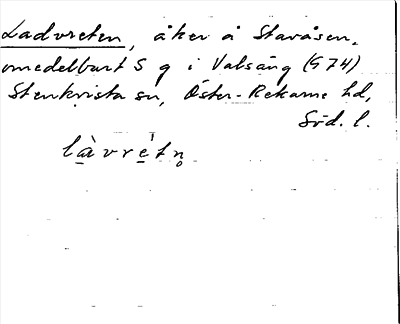 Ladvreten, åker å Stavåsen,
omedelbart S g i Valsäng (G 74)
Stenkvista sn, Öster-Rekarne hd,
Söd. l.
làvretn̥